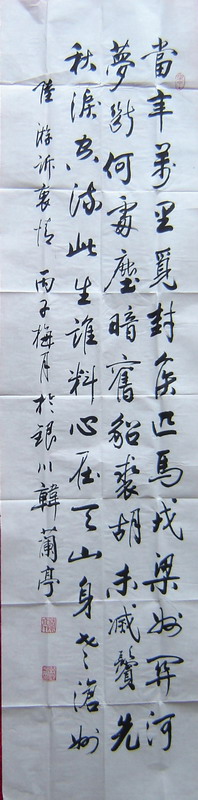 當年萬里覓封侯匹馬戍梁州関河
夢斷何處塵暗舊貂裘胡未滅鬢先
秋淚空流此生誰料心在天山身老滄州
陸游訴衷情 丙子梅月於銀川韓蘭亭